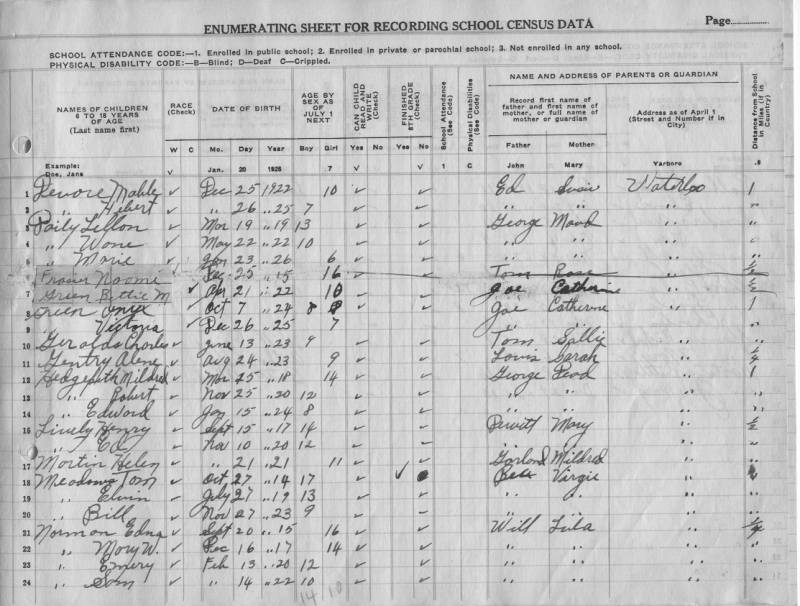 ENUMERATING SHEET FOR RECORDING SCHOOL CENSUS DATA Page
SCHOOL ATTENDANCE CODE:—1. Enrolled in public school; 2. Enrolled in private or parochial school; 3. Not enrolled in any school.
PHYSICAL DISABILITY CODE:—B—Blind; D—Deaf C—Crippled.
NAMES OF CHILDREN 6 TO 18 YEARS OF AGE (Last name first) RACE (Check) DATE OF BIRTH AGE BY SEX AS OF JULY 1 NEXT CAN CHILD READ AND WRITE (Check) FINISHED 8TH GRADE (Check) School Attendance (See Code) Physical Disabilities (See Code) NAME AND ADDRESS OF PARENTS OR GUARDIAN Distance from School in Miles (if in Country)
Record first name of father and first name of mother, or full name of mother or guardian Address as of April 1 (Street and Number if in City)
W C Mo. Day Year Boy Girl Yes No Yes No Father Mother
Example: Doe, Jane √ Jan. 20 1926 7 √ √ 1 C John Mary Yarboro .8
1 Devore ✓ Dec 25 1922 10 ✓ ✓ Ed Susie Waterloo 1
2 " Hibert ✓ " 26 "25 7 ✓ ✓ " " " "
3 Paily Lillon ✓ Mar 19 "19 13 ✓ ✓ George Maud " "
4 " Wone ✓ May 22 "22 10 ✓ ✓ " " " "
5 " Marie ✓ Jan 23 "26 6 ✓ ✓ " " " "
6 Frasier Naomi Dec 25 "15 16 ✓ ✓ Tom Rose " 1/2
7 Green Bettie M ✓ Apr 21 "22 10 ✓ ✓ Joe Catherine " 1/2
8 Green ✓ Oct 7 "24 8 ✓ ✓ Joe Catherine " 1
9 " Victoria ✓ Dec 26 "25 7 ✓ " " " "
10 Geralds Charles ✓ June 13 "23 9 ✓ ✓ Tom Sallie " 1/2
11 Gentry Alene ✓ Aug 24 "23 9 ✓ ✓ Louis Sarah "
12 Hedgepath Mildred ✓ Mar 25 "18 14 ✓ ✓ George " 1
13 " Robert ✓ Nov 25 "20 12 ✓ ✓ " " " "
14 " Edward ✓ Jan 15 "24 8 ✓ ✓ " " " "
15 Lively Henry ✓ Sept 15 "17 14 ✓ ✓ Dewitt Mary " 1/2
16 " Ed ✓ Nov 10 "20 12 ✓ ✓ " " " "
17 Martin Helen ✓ " 21 "21 11 ✓ ✓ Garland Mildred " "
18 Meadows Tom ✓ Oct 27 "14 17 ✓ ✓ Virgie "
19 " Elvin ✓ July 27 "19 13 ✓ ✓ " " " "
20 " Bill ✓ Nov 27 "23 9 ✓ ✓ " " " "
21 Norman Edna ✓ Sept 20 "15 16 ✓ ✓ Will Lula "
22 " Mary W. ✓ Dec 16 "17 14 ✓ ✓ " " " "
23 " Emery ✓ Feb 13 "20 12 ✓ ✓ " " " "
24 " Sam ✓ " 14 "22 10 ✓ ✓ " " " "
14 10